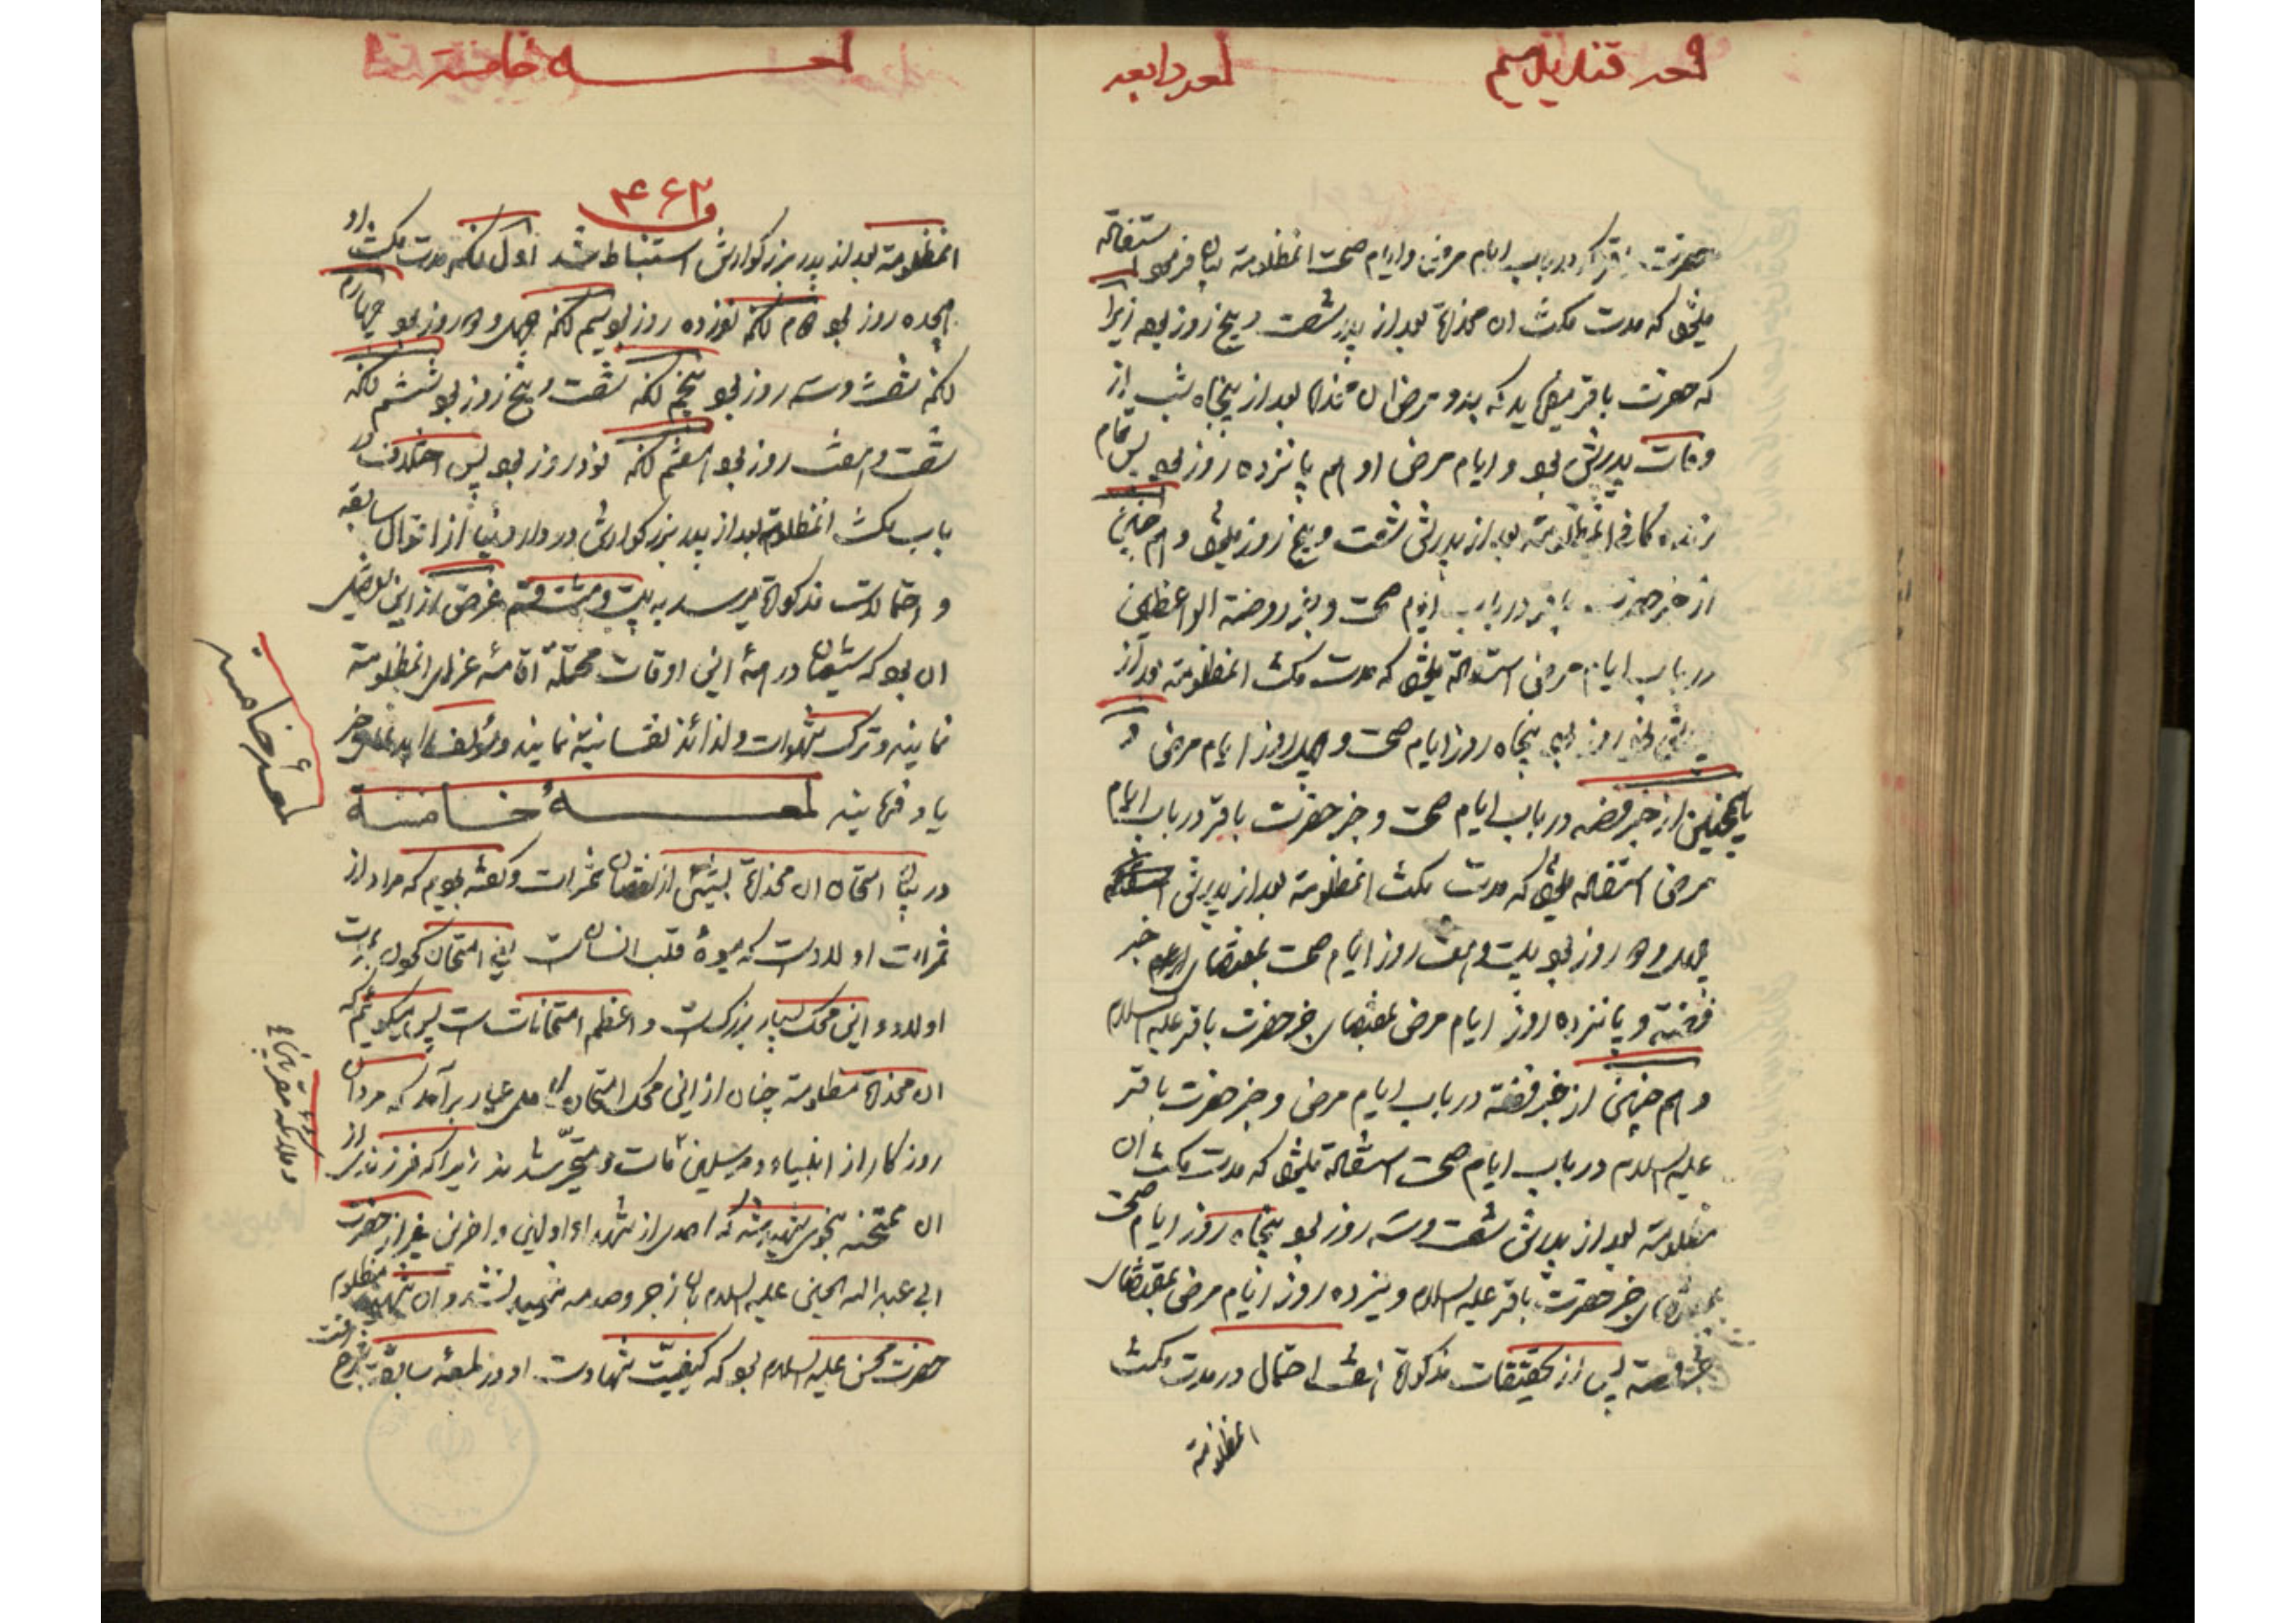 لمعه رابعه
حضرت باقر در باب ایام مرض و ایام صحت انمظلومة بیان فرمود استفاله
میشود که مدت مکث ان مخدرة بعد از پدر شصت و پنج روز بود زیرا
که حضرت باقر میفرماید که بدو مرض ان مخدرة بعد از پنجاه شب از
وفات پدرش بود و ایام مرض او هم پانزده روز بود پس تمام
زنده کانی انمظلومة بعد از پدرش شصت و پنج روز میشود و هم چنین
از خبر حضرت باقر در باب ایام صحت و خبر روضة الواعظین
در باب ایام مرض استفاله میشود که مدت مکث انمظلومة بعد از
پدرش نود روز بود پنجاه روز ایام صحت و چهل روز ایام مرض و
یا همچنین از خبر فضه در باب ایام صحت و خبر حضرت باقر در باب ایام
مرض استفاله میشود که مدت مکث انمظلومة بعد از پدرش
چهل و دو روز بود بیست و هفت روز ایام صحت بمقتضای خبر
فضه و پانزده روز ایام مرض بمقتضای خبر حضرت باقر علیه السلام
و هم چنین از خبر فضه در باب ایام مرض و خبر حضرت باقر
علیه السلام در باب ایام صحت استفاله میشود که مدت مکث ان
مظلومة بعد از پدرش شصت و سه روز بود پنجاه روز ایام صحت
بمقتضای خبر حضرت باقر علیه السلام و سیزده روز ایام مرض بمقتضای
خبر فضه پس از تحقیقات مذکورة هفت احتمال در مدت مکث
انمظلومة
لمعه خامسه
۴۶۲
انمظلومة بعد از پدر بزرگوارش استنباط شد اول انکه مدت مکث او
هجده روز بود دوم انکه نوزده روز بود سیم انکه چهل و دو روز بود چهارم
انکه شصت و سه روز بود پنجم انکه شصت و پنج روز بود ششم انکه
شصت و هفت روز بود هفتم انکه نود روز بود پس اختلاف در
باب مکث انمظلومة بعد از پدر بزرگوارش در دار دنیا از اقوال سابقه
و احتمالات مذکورة میرسد به بیست و هشت قسم غرض از این تفصیل
ان بود که شیعیان در همه این اوقات محتملة اقامه عزای انمظلومة
نمایند و ترک شهوات و لذائذ نفسانیة نمایند و مؤلف را بدعای خیر
یاد فرمایند لمعه خامسة
لمعه خامسه
در بیان امتحان ان مخدرة بسبب از نقصان ثمرات و گفته بودیم که مراد از
ثمرات اولاد است که میوه قلب انسان است یعنی امتحان کردن بموت
اولاد و این محک بسیار بزرگست و اعظم امتحانات است پس میگویم که
ان مخدرة مظلومة چنان از این محک امتحان عیار برآمد که مردان
روزگار از انبیاء و مرسلین مات و متحیر شدند زیرا که فرزندی از
ان ممتحنه بنحوی شهید شد که احدی از شهداء اولین و اخرین غیر از حضرت
ابی عبد الله الحسین علیه السلام بان زجر و صدمه شهید نشد و ان شهید مظلوم
حضرت محسن علیه السلام بود که کیفیت شهادت او در لمعه سابقة بشرح رفت